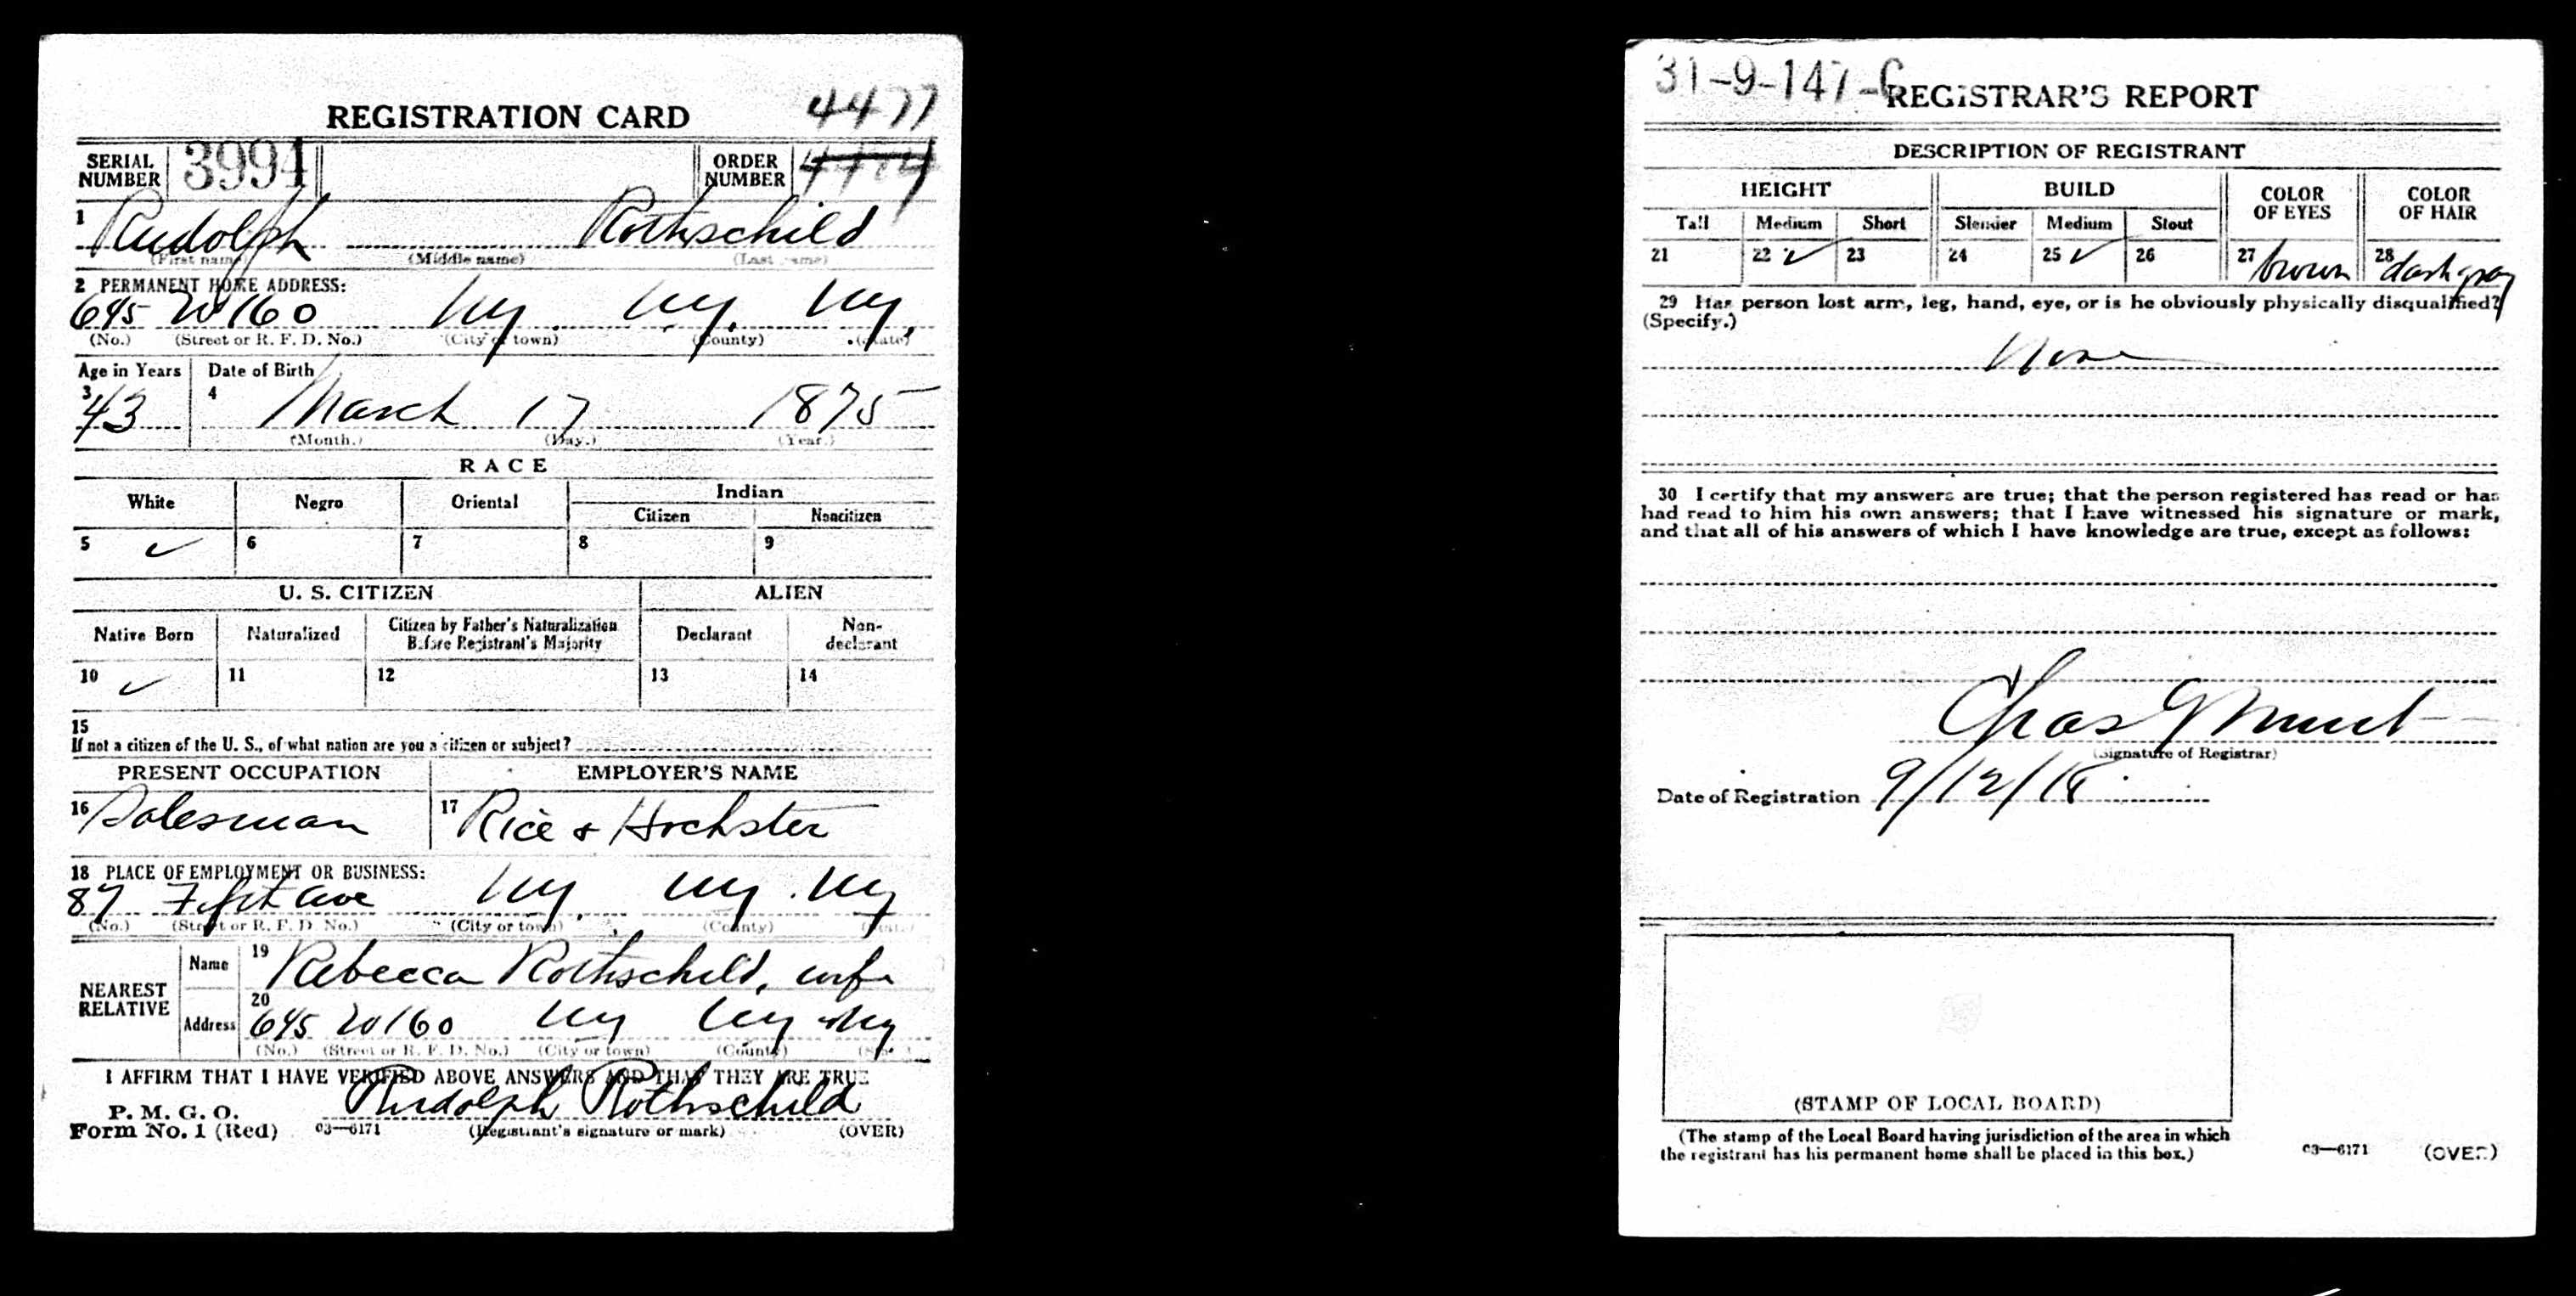 4477
REGISTRATION CARD
SERIAL NUMBER 3994 ORDER NUMBER
1 Rudolph Rothschild
(First name) (Middle name) (Last name)
2 PERMANENT HOME ADDRESS:
645 W 160 NY. NY. NY.
(No.) (Street or R. F. D. No.) (City or town) (County) (State)
Age in Years Date of Birth
3 43 4 March 17 1875
(Month.) (Day.) (Year.)
RACE
White Negro Oriental Indian
Citizen Noncitizen
5 ✓ 6 7 8 9
U. S. CITIZEN ALIEN
Native Born Naturalized Citizen by Father's Naturalization Before Registrant's Majority Declarant Non-declarant
10 ✓ 11 12 13 14
15
If not a citizen of the U. S., of what nation are you a citizen or subject?
PRESENT OCCUPATION EMPLOYER'S NAME
16 Salesman 17 Rice & Hochster
18 PLACE OF EMPLOYMENT OR BUSINESS:
87 Fifth Ave NY. NY. NY
(No.) (Street or R. F. D. No.) (City or town) (County) (State)
NEAREST RELATIVE Name 19 Rebecca Rothschild, wife
Address 20 645 W 160 NY NY NY
(No.) (Street or R. F. D. No.) (City or town) (County) (State)
I AFFIRM THAT I HAVE VERIFIED ABOVE ANSWERS AND THAT THEY ARE TRUE
P. M. G. O.
Form No. 1 (Red) 03—6171 Rudolph Rothschild
(Registrant's signature or mark) (OVER)
31-9-147-C
REGISTRAR'S REPORT
DESCRIPTION OF REGISTRANT
HEIGHT BUILD COLOR OF EYES COLOR OF HAIR
Tall Medium Short Slender Medium Stout
21 22 ✓ 23 24 25 ✓ 26 27 brown 28 dark gray
29 Has person lost arm, leg, hand, eye, or is he obviously physically disqualified?
(Specify.)
None
30 I certify that my answers are true; that the person registered has read or has
had read to him his own answers; that I have witnessed his signature or mark,
and that all of his answers of which I have knowledge are true, except as follows:
Chas
(Signature of Registrar)
Date of Registration 9/12/18
(STAMP OF LOCAL BOARD)
(The stamp of the Local Board having jurisdiction of the area in which
the registrant has his permanent home shall be placed in this box.)
03—6171 (OVER)